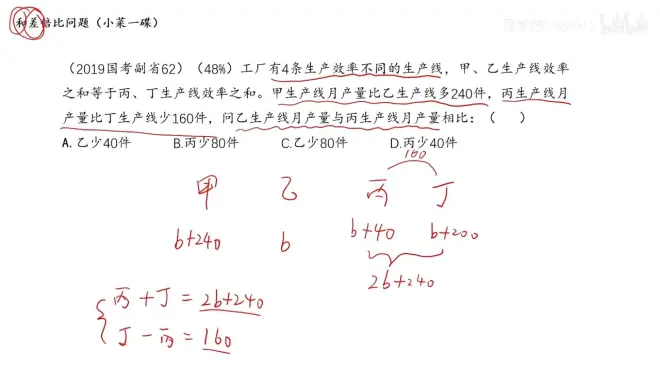 和差倍比问题（小菜一碟）
（2019国考副省62）（48%）工厂有4条生产效率不同的生产线，甲、乙生产线效率
之和等于丙、丁生产线效率之和。甲生产线月产量比乙生产线多240件，丙生产线月
产量比丁生产线少160件，问乙生产线月产量与丙生产线月产量相比：（ ）
A. 乙少40件 B.丙少80件 C.乙少80件 D.丙少40件
160
甲 乙 丙 丁
b+240 b b+40 b+200
2b+240
丙+丁=2b+240
丁-丙=160